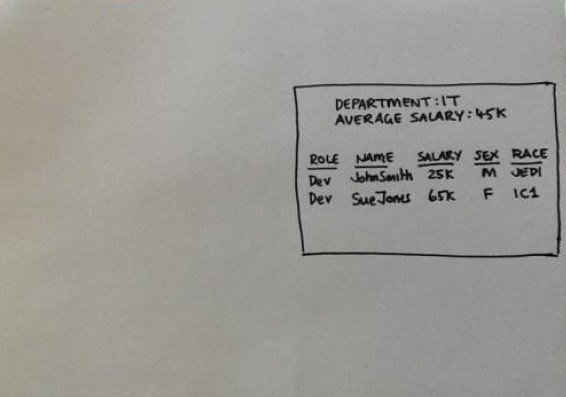 DEPARTMENT: IT
AVERAGE SALARY: 45K
ROLE NAME SALARY SEX RACE
Dev John Smith 25K M JEDI
Dev Sue Jones 65K F IC1